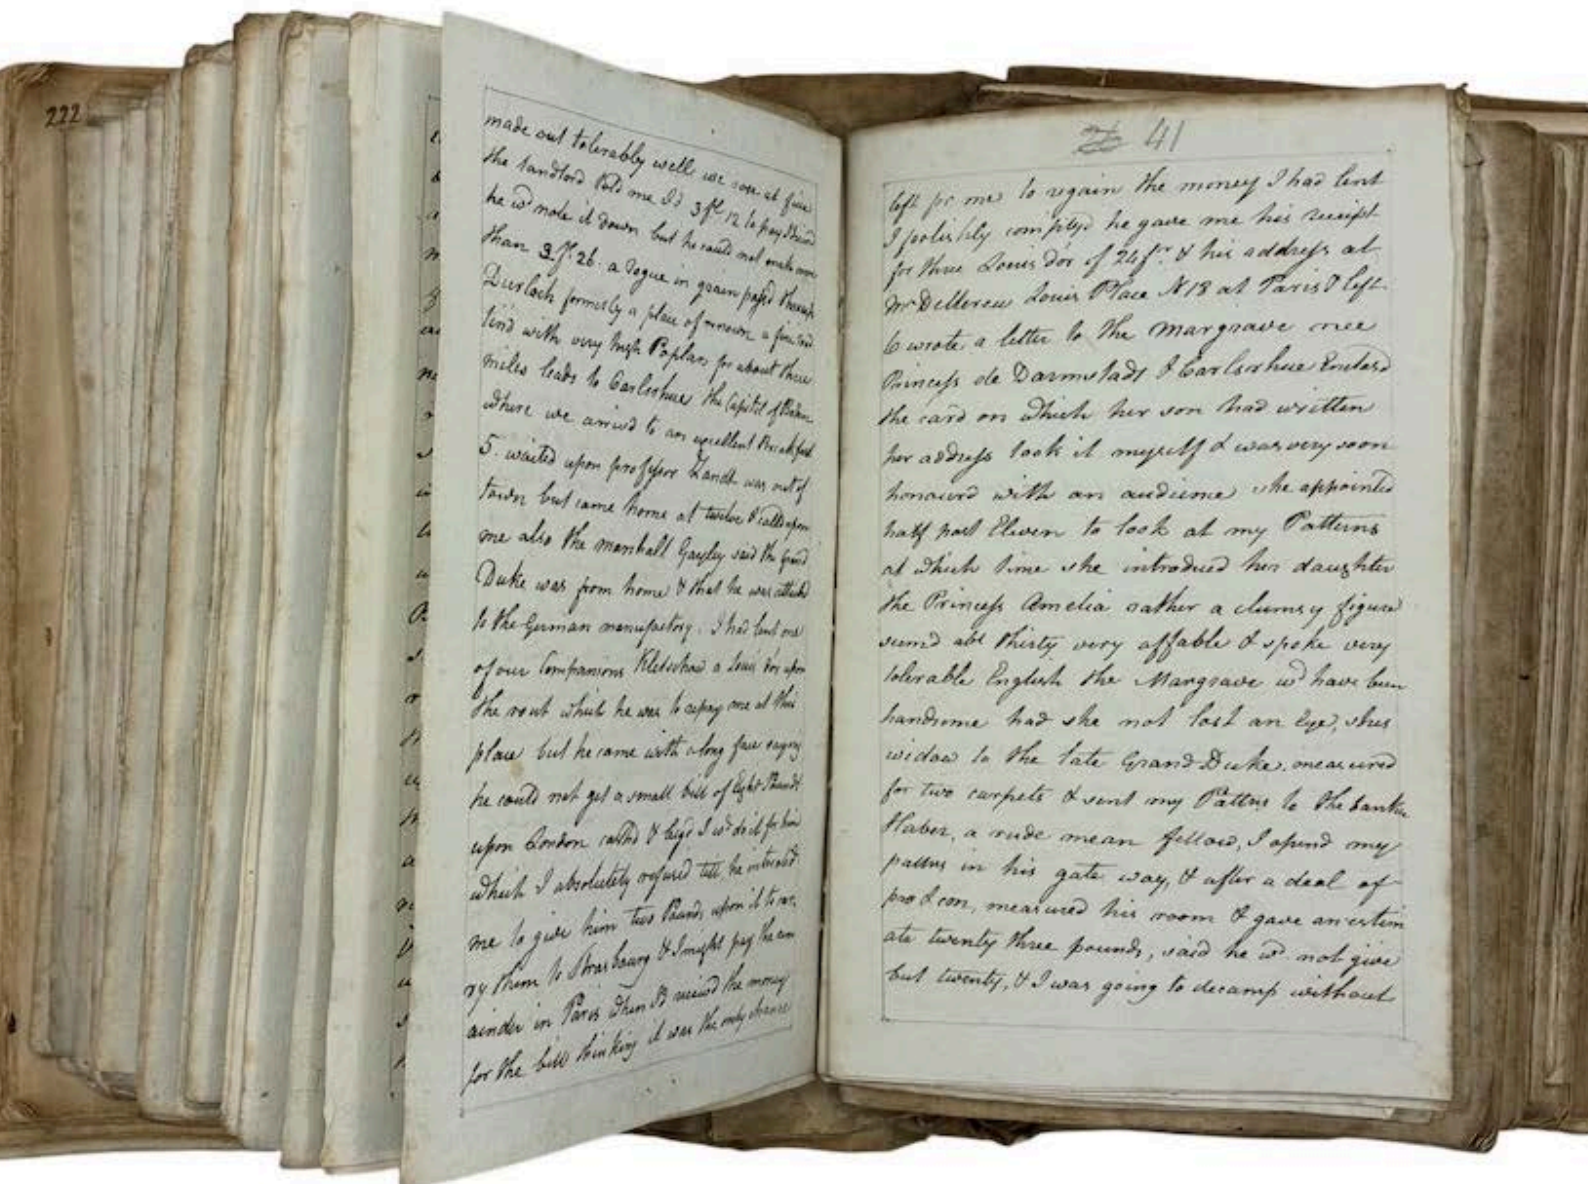 222
made out tolerably well we rose at five
the Landlord told me I'd 3 fl 12 to pay I said
he wd note it down but he could not make more
than 3 fl. 26. a rogue in grain passd through
Durlach formerly a place of renown a fine road
lin'd with very high Poplars for about three
miles leads to Carlsrhue the Capitol of Baden
where we arrivd to an excellent Breakfast
5. waited upon professor Zandt was out of
town but came home at twelve & calld upon
me also the marshall Gayley said the Grand
Duke was from home & that he was attachd
to the German manufactory. I had lent one
of our Companions Kletschow a Louis d'or upon
the rout which he was to repay me at this
place but he came with a long face saying
he could not get a small bill of Eight Pounds
upon London cashd & beg'd I wd do it for him
which I absolutely refused till he intreated
me to give him two Pounds upon it to car,
ry him to Strasbourg & I might pay the rem
ainder in Paris when I'd receivd the money
for the bill thinking it was the only chance
41
left for me to regain the money I had lent
I foolishly complyd he gave me his receipt
for three Louis d'or of 24 fr. & his address at
Mr Louis Place N 18 at Paris & left
6 wrote a letter to the Margrave nee
Princess de Darmstadt & Carlsrhue Enclosd
the card on which her son had written
her address took it myself & was very soon
honourd with an audience she appointed
half past Eleven to look at my Patterns
at which time she introduced her daughter
the Princess Amelia rather a clumsy figure
seemd abt thirty very affable & spoke very
tolerable English the Margrave wd have been
handsome had she not lost an Eye, shes
widow to the late Grand Duke. measured
for two carpets & sent my Pattns to the banker
Haber, a rude mean fellow, I opend my
pattns in his gate way, & after a deal of
pro & con, measured his room & gave an estim
ate twenty three pounds, said he wd not give
but twenty, & I was going to decamp without